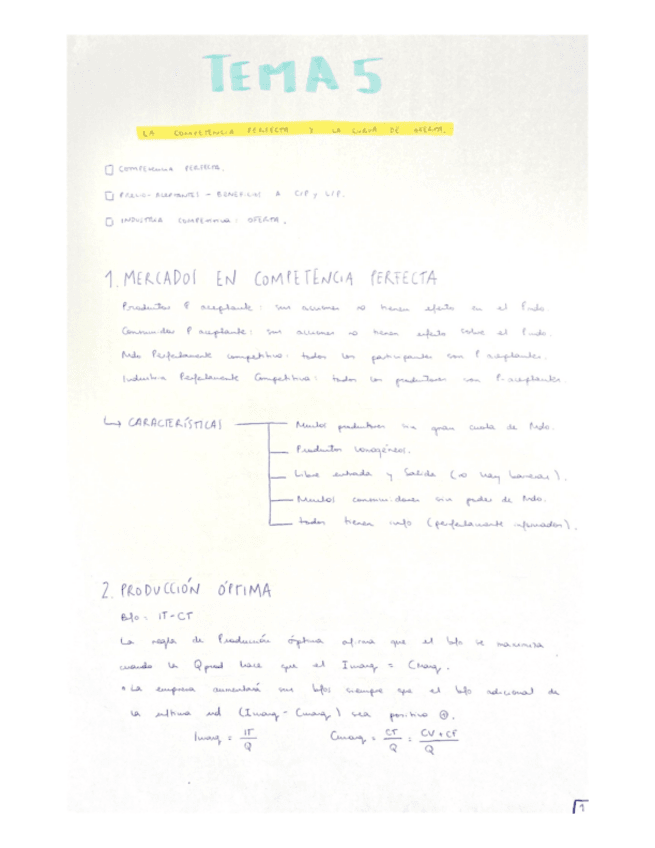 TEMA 5
LA COMPETENCIA PERFECTA Y LA CURVA DE OFERTA.
COMPETENCIA PERFECTA.
PRECIO-ACEPTANTES - BENEFICIOS A C/P y L/P.
INDUSTRIA COMPETITIVA: OFERTA.
1. MERCADOS EN COMPETENCIA PERFECTA
Productor P aceptante: sus acciones no tienen efecto en el Pmdo
Consumidor P aceptante: sus acciones no tienen efecto sobre el Pmdo.
Mdo Perfectamente competitivo: todos los participantes son P aceptantes.
Industria Perfectamente Competitiva: todos los productores son P-aceptantes.
↳ CARACTERÍSTICAS
Muchos productores sin gran cuota de Mdo.
Productos homogéneos.
Libre entrada y Salida (no hay barreras).
Muchos consumidores sin poder de Mdo.
todos tienen info (perfectamente informados).
2. PRODUCCIÓN ÓPTIMA
Bfo = IT-CT
La regla de Producción óptima afirma que el bfo se maximiza
cuando la Qprod hace que el Imarg = Cmarg.
* La empresa aumentará sus bfos siempre que el bfo adicional de
la última ud (Imarg - Cmarg) sea positivo ⊕.
Imarg = IT/Q Cmarg = CT/Q = CV+CF/Q
1